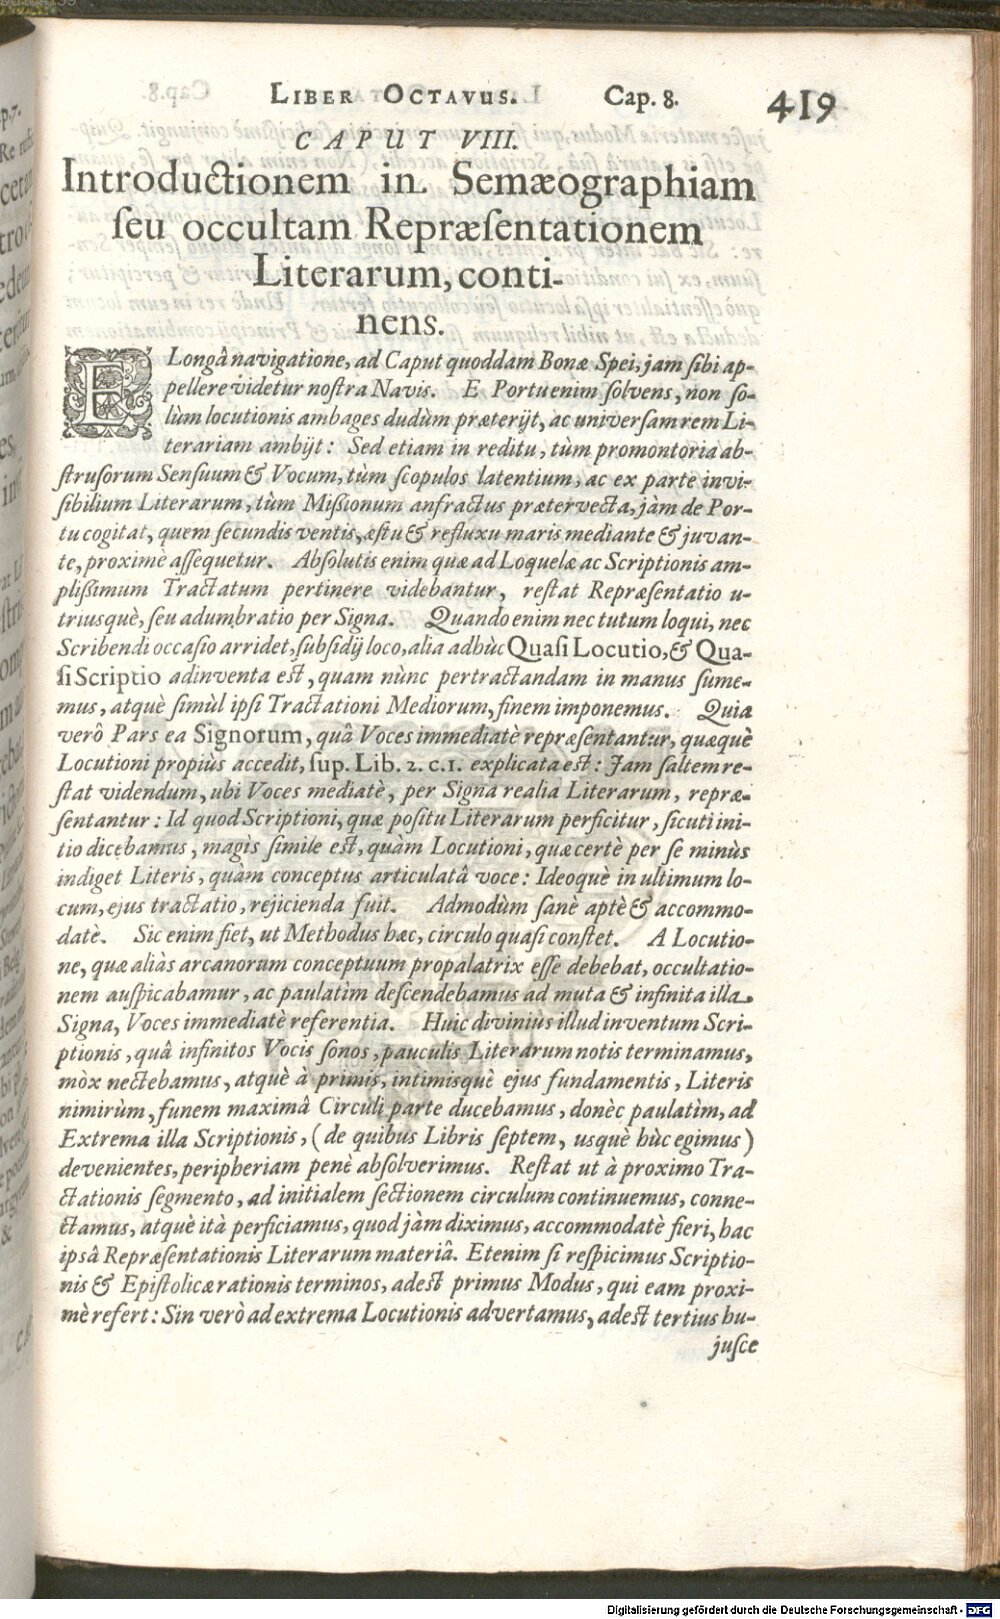 LIBER OCTAVUS. Cap. 8. 419
CAPUT VIII.
Introductionem in Semæographiam
ſeu occultam Repræſentationem
Literarum, conti-
nens.
E Longâ navigatione, ad Caput quoddam Bonæ Spei, jam ſibi ap-
pellere videtur noſtra Navis. E Portu enim ſolvens, non ſo-
lùm locutionis ambages dudùm præterijt, ac univerſam rem Li-
terariam ambijt: Sed etiam in reditu, tùm promontoria ab-
ſtruſorum Senſuum & Vocum, tùm ſcopulos latentium, ac ex parte invi-
ſibilium Literarum, tùm Miſſionum anfractus prætervecta, jàm de Por-
tu cogitat, quem ſecundis ventis, æſtu & refluxu maris mediante & juvan-
te, proximè aſſequetur. Abſolutis enim quæ ad Loquelæ ac Scriptionis am-
pliſſimum Tractatum pertinere videbantur, reſtat Repræſentatio u-
triusquè, ſeu adumbratio per Signa. Quando enim nec tutum loqui, nec
Scribendi occaſio arridet, ſubſidij loco, alia adhùc Quaſi Locutio, & Qua-
ſi Scriptio adinventa eſt, quam nùnc pertractandam in manus ſume-
mus, atquè ſimùl ipſi Tractationi Mediorum, finem imponemus. Quia
verò Pars ea Signorum, quâ Voces immediatè repræſentantur, quæquè
Locutioni propiùs accedit, ſup. Lib. 2. c. 1. explicata eſt: Jam ſaltem re-
ſtat videndum, ubi Voces mediatè, per Signa realia Literarum, repræ-
ſentantur: Id quod Scriptioni, quæ poſitu Literarum perficitur, ſicuti ini-
tio dicebamus, magìs ſimile eſt, quàm Locutioni, quæ certè per ſe minùs
indiget Literis, quàm conceptus articulatâ voce: Ideoquè in ultimum lo-
cum, ejus tractatio, rejicienda fuit. Admodùm ſanè aptè & accommo-
datè. Sic enim fiet, ut Methodus hæc, circulo quaſi conſtet. A Locutio-
ne, quæ aliàs arcanorum conceptuum propalatrix eſſe debebat, occultatio-
nem auſpicabamur, ac paulatìm deſcendebamus ad muta & infinita illa
Signa, Voces immediatè referentia. Huic divinius illud inventum Scri-
ptionis, quâ infinitos Vocis ſonos, pauculis Literarum notis terminamus,
mòx nectebamus, atquè à primis, intimisquè ejus fundamentis, Literis
nimirùm, funem maximâ Circuli parte ducebamus, donèc paulatìm, ad
Extrema illa Scriptionis, (de quibus Libris ſeptem, usquè hùc egimus)
devenientes, peripheriam penè abſolverimus. Reſtat ut à proximo Tra-
ctationis ſegmento, ad initialem ſectionem circulum continuemus, conne-
ctamus, atquè ità perficiamus, quod jàm diximus, accommodatè fieri, hac
ipsâ Repræſentationis Literarum materiâ. Etenim ſi reſpicimus Scriptio-
nis & Epiſtolicæ rationis terminos, adeſt primus Modus, qui eam proxi-
mè refert: Sin verò ad extrema Locutionis advertamus, adeſt tertius hu-
juſce
Digitalisierung gefördert durch die Deutsche Forschungsgemeinschaft - DFG